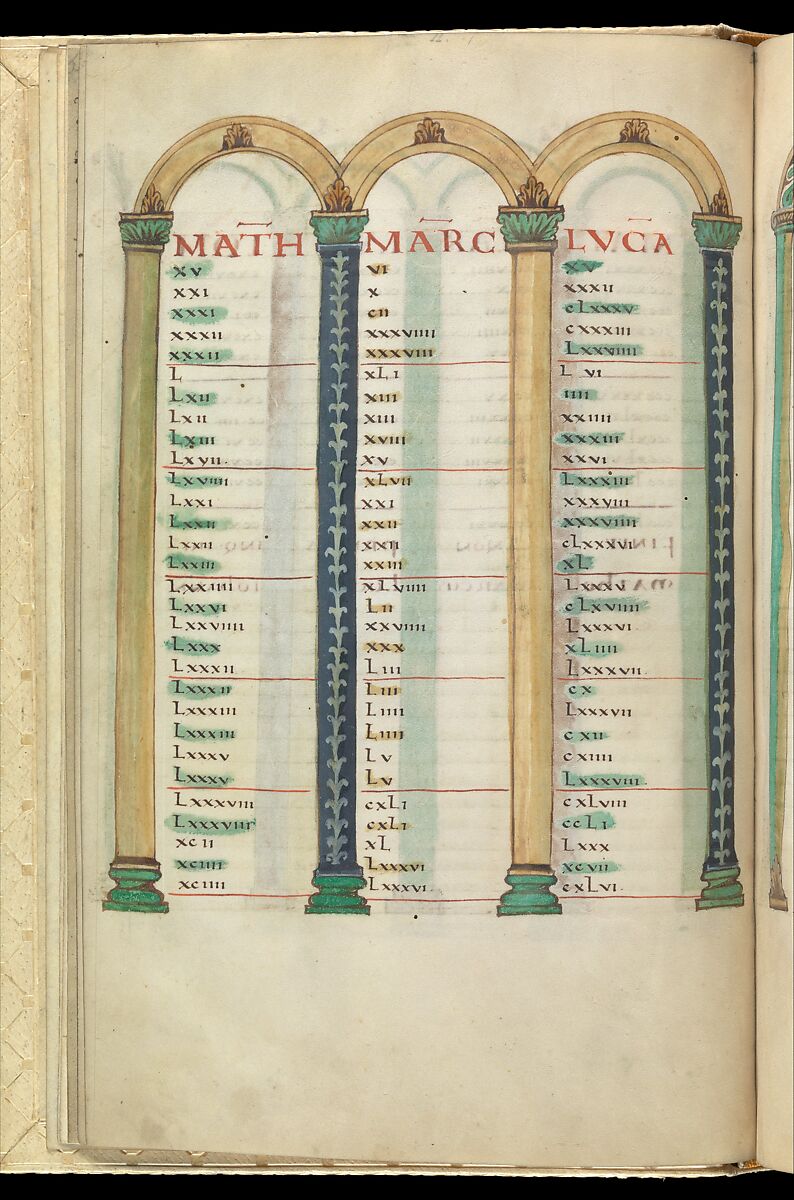 MATH MARC LVCA
xv vi xv
xxi x xxxii
xxxi cii cLxxxv
xxxii xxxviiii cxxxiii
xxxii xxxviiii Lxxviiii
L xLi Lvi
Lxii xiii iiii
Lxii xiii xxiiii
Lxiii xviii xxxiii
Lxvii. xv xxvi
Lxviiii xLvii Lxxxiii
Lxxi xxi xxxviii
Lxxii xxii xxxviiii
Lxxii xxii cLxxxvi
Lxxiii xxiii xL
Lxxiiii xLviiii Lxxxv
Lxxvi Lii cLxviiii
Lxxviiii xxviiii Lxxxvi
Lxxx xxx xLiiii
Lxxxii Liii Lxxxvii.
Lxxxii Liii cx
Lxxxiii Liiii Lxxxvii
Lxxxiii Liiii cxii
Lxxxv Lv cxiiii
Lxxxv Lv Lxxxviii
Lxxxviii cxLi cxLviii
Lxxxviii cxLi ccLi
xcii xL Lxxx
xciiii Lxxxvi xcvii
xciiii Lxxxvi. cxLvi.